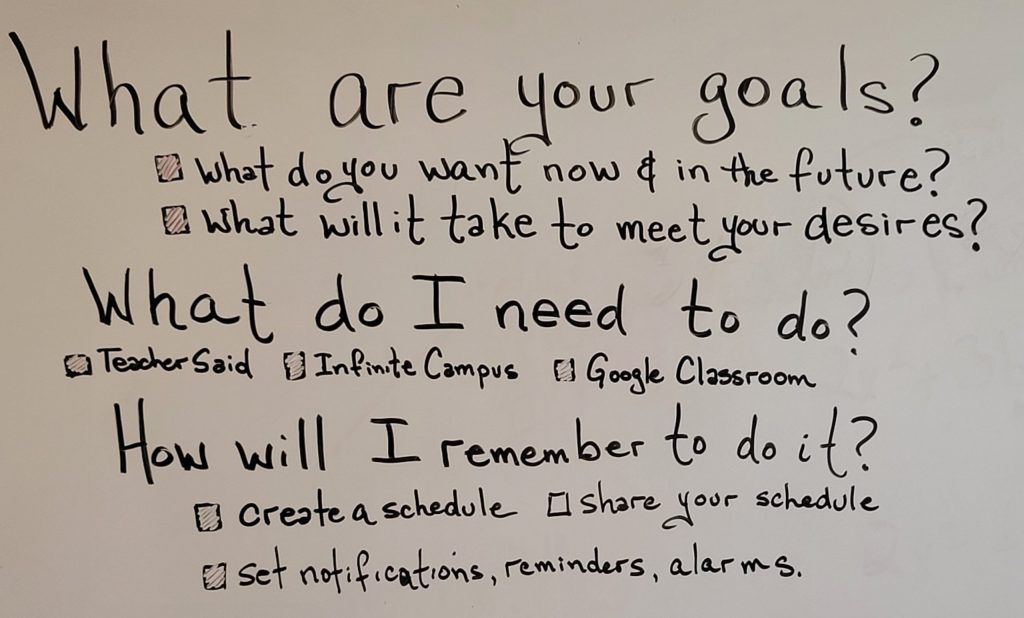 What are your goals?
What do you want now & in the future?
What will it take to meet your desires?
What do I need to do?
Teacher Said Infinite Campus Google Classroom
How will I remember to do it?
create a schedule share your schedule
set notifications, reminders, alarms.